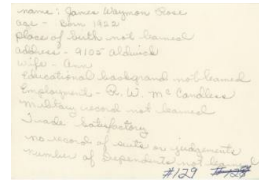 name: James Waymon Rose
age - Born 1922
place of birth not learned
address - 9105 Aldwick
wife - Ann
Educational background not learned
Employment - R. W. McCandless
Military record not learned
Trade satisfactory
no record of suits or judgements
number of dependents not learned
#129